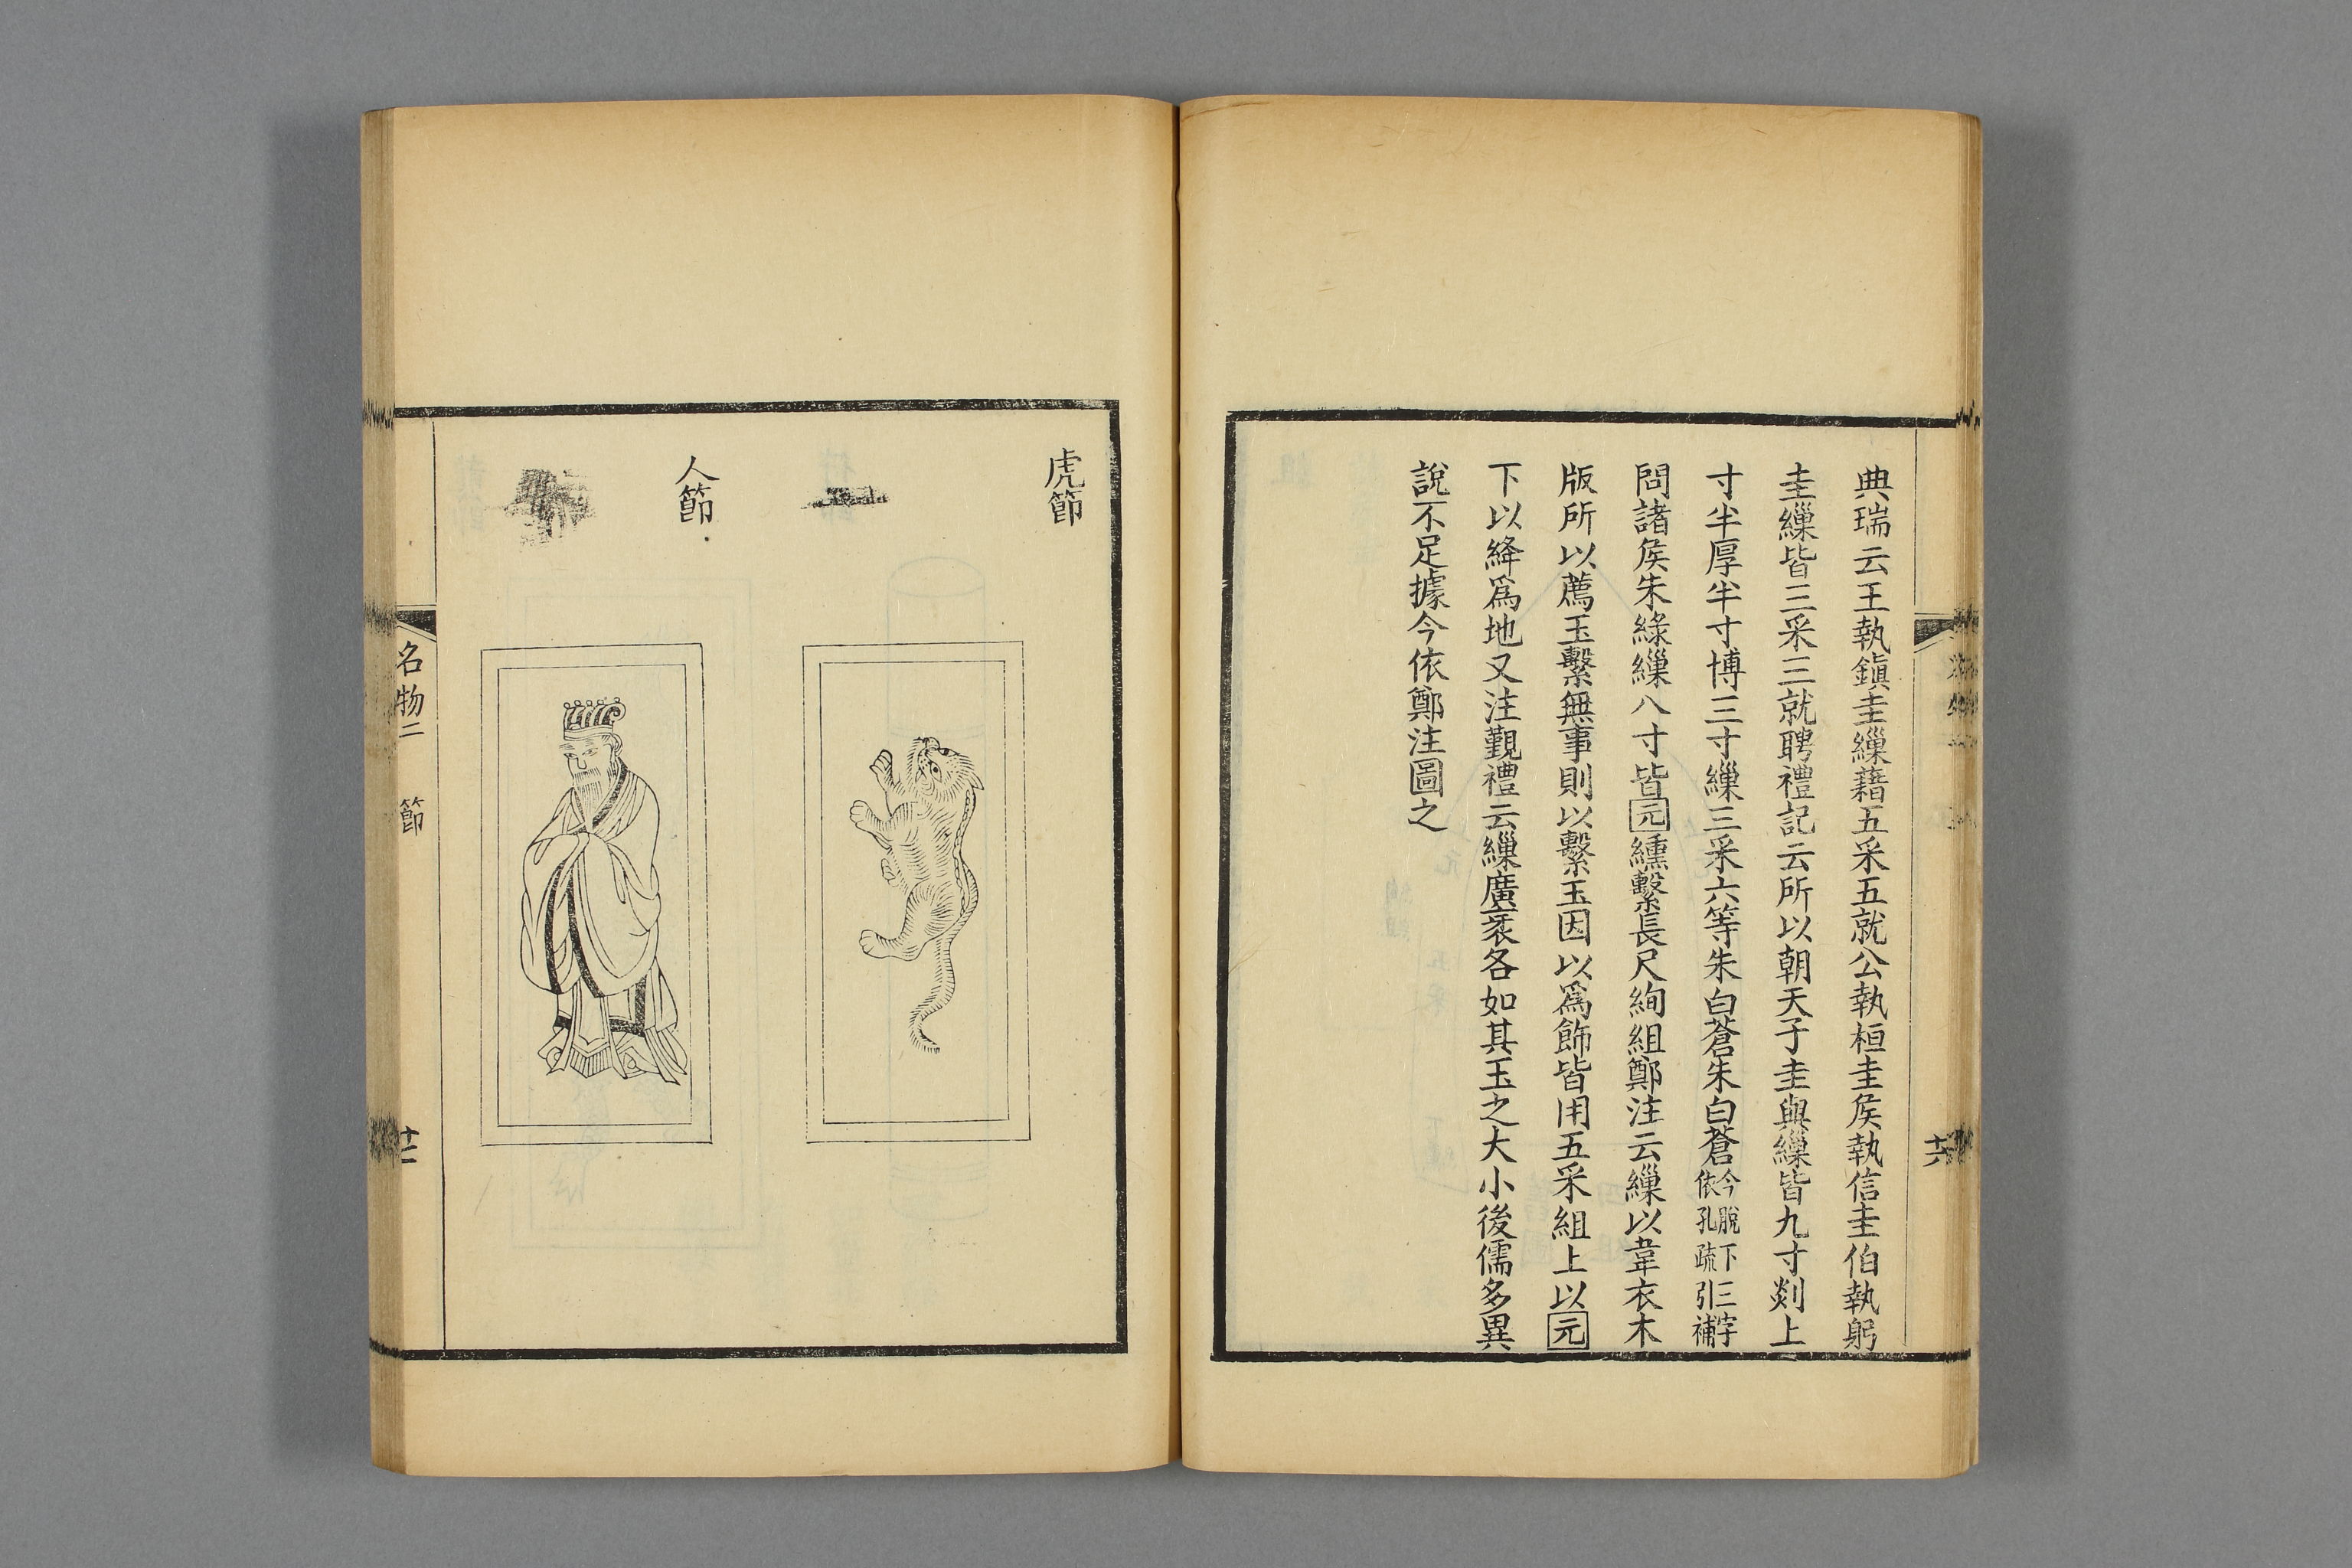 典瑞云王執鎭圭繅藉五采五就公執桓圭侯執信圭伯執躬
圭繅皆三采三就聘禮記云所以朝天子圭與繅皆九寸剡上
寸半厚半寸博三寸繅三采六等朱白蒼朱白蒼今脫下三字依孔疏引補
問諸侯朱綠繅八寸皆元纁繫長尺絢組鄭注云繅以韋衣木
版所以薦玉繫無事則以繫玉因以爲飾皆用五采組上以元
下以絳爲地又注覲禮云繅廣袤各如其玉之大小後儒多異
說不足據今依鄭注圖之
十六
虎節
人節
名物二 節